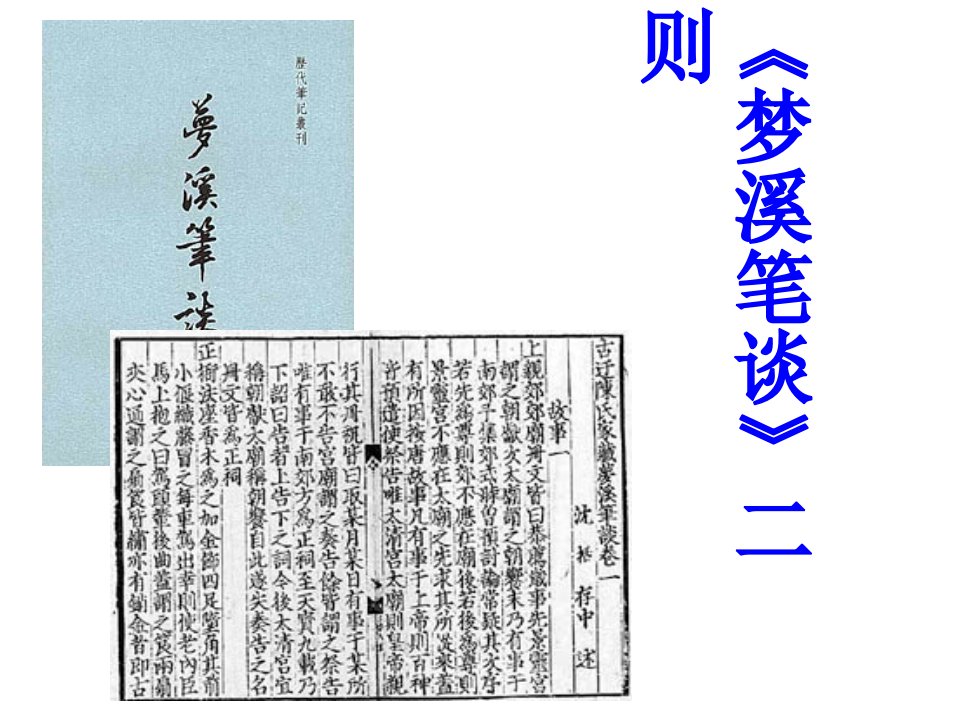 《梦溪笔谈》二
则
歷代筆記叢刊
夢溪筆談
古迂陳氏家藏夢溪筆談卷一
沈括存中述
故事一
上親郊郊廟冊文皆曰恭薦歲事先景靈宮
謂之朝獻次太廟謂之朝饗末乃有事于
南郊予集郊式時曾預討論常疑其次序
若先爲尊則郊不應在廟後若後爲尊則
景靈宮不應在太廟之先求其所從來蓋
有所因按唐故事凡有事于上帝則百神
皆預遣使祭告唯太清宮太廟則皇帝親
行其冊祝皆曰取某月某日有事于某所
不敢不告宮廟謂之奏告餘皆謂之祭告
唯有事于南郊方爲正祠至天寶九載乃
下詔曰告者上告下之詞今後太清宮宜
稱朝獻太廟稱朝饗自此遂失奏告之名
冊文皆爲正祠
正衙法座香木爲之加金飾四足墮角其前
小偃織藤冒之每車駕出幸則使老內臣
馬上抱之曰駕頭輦後曲蓋謂之筤兩扇
夾心通謂之扇筤皆繡亦有銷金者即古